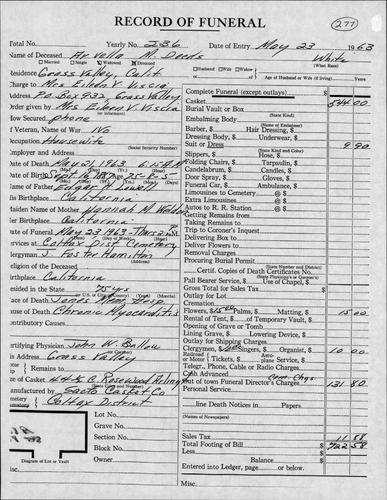 RECORD OF FUNERAL
277
Total No. Yearly No. 236 Date of Entry May 23 1963
Name of Deceased Arvella M. Deeds White
Married Single Widowed Divorced (What Race)
Residence Grass Valley, Calif. Husband Wife Widow Age of Husband or Wife (if living) Years
Charge to Mrs Eileen V. Viscia
Address P.O. Box 932 Grass Valley
Order given by Mrs Eileen V. Viscia
How Secured phone
If Veteran, Name of War No
Occupation Housewife
(Social Security Number)
Employer and Address
Date of Death May 21, 1963 6:15 A.M.
Date of Birth Sept 16, Age 75-8-5
Name of Father Edgar
His Birthplace California
Maiden Name of Mother Hannah M.
Her Birthplace California
Date of Funeral May 23 1963 - Thur 2 P.M.
Services at Colfax Dist Cemetery
Clergyman J. Foster Hamilton
Religion of the Deceased
Birthplace California
Resided in the State 75 yrs
Place of Death
Cause of Death Chronic Myocarditis
Contributory Causes
Certifying Physician John W. Ballou
His Address Grass Valley
Remains to
Size of Casket Rosewood
Manufactured by Sacto Casket Co
Cemetery Colfax District
Lot No.
Grave No.
Section No.
Block No.
Owner
Diagram of Lot or Vault
Complete Funeral (except outlays) $
Casket 544 00
Burial Vault or Box
(State Kind)
Embalming Body
(Name of Embalmer)
Barber, $ Hair Dressing, $
Dressing Body, $ Underwear, $
Suit or Dress 9 90
(State Kind and Color)
Slippers, $ Hose, $
Folding Chairs, $ Tarpaulin, $
Candelabrum, $ Candles, $
Door Spray, $ Gloves, $
Funeral Car, $ Ambulance, $
Limousines to Cemetery @ $
Extra Limousines @ $
Autos to R. R. Station @ $
Getting Remains from
Taking Remains to
Trip to Coroner's Inquest
Delivering Box to
Deliver Flowers to
Removal Charges
Procuring Burial Permit
(State Number and District)
Certif. Copies of Death Certificates No.
(State Physician's or Coroner's)
Pall Bearer Service, $ Use of Chapel, $
Gross Total for Sales Tax $
Outlay for Lot
Cremation
Flowers, $15.00 Palms, $ Matting, $ 15 00
Rental of Tent, $ of Temporary Vault, $
Opening of Grave or Tomb
Lining Grave, $ Lowering Device, $
Outlay for Shipping Charges
Clergymen, $ Singers, $ Organist, $ 10 00
Railroad or Motor Tickets, $ Aeroplane Service, $
Telegr., Phone, Cable or Radio Charges
Cash Advanced
Out of town Funeral Director's Charges 131 50
Personal Service
line Death Notices in Papers
(Names of Newspapers)
Sales Tax $ 11 58
Total Footing of Bill $ 722 58
Less
Balance $
Entered into Ledger, page or below.
Misc.